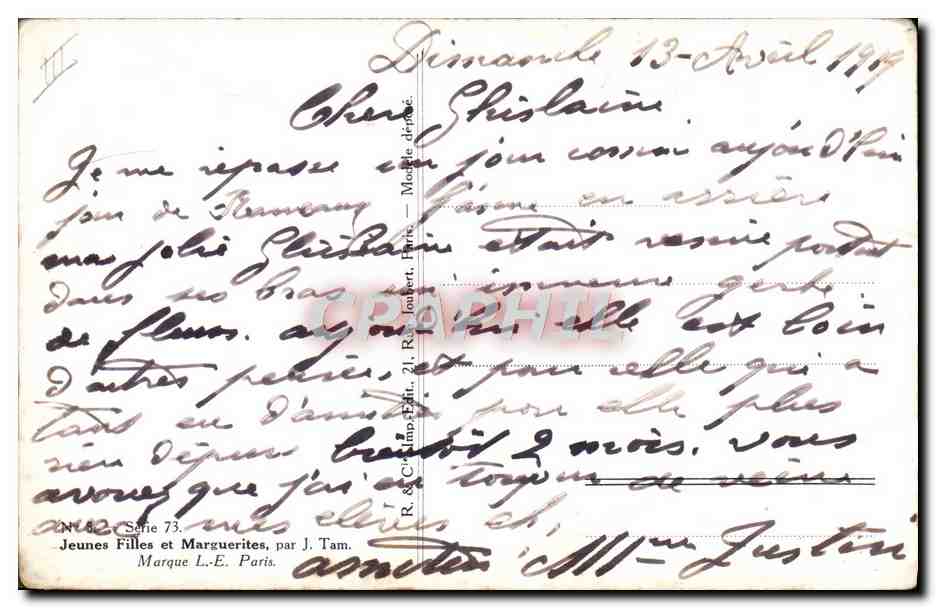 III
Dimanche 13 - Avril 1919
Chere Ghislaine
Je me repasse un jour comme aujourd'hui
jour de Rameaux l'année en arrière
ma jolie Ghislaine etait venue portant
dans ses bras une immense gerbe
de fleurs. aujourd'hui elle est loin
d'autres pensées, et pour celle qui a
tant eu d'amitié pour elle plus
rien depuis bientôt 2 mois. Vous
avouez que j'ai eu toujours de veine
avec mes elèves et,
amitiés Mme Justin
Série 73.
Jeunes Filles et Marguerites, par J. Tam.
Marque L.-E. Paris.
R. & Cie Imp.-Edit., 21, R. Joubert, Paris. — Modèle déposé.
CPAPHIL